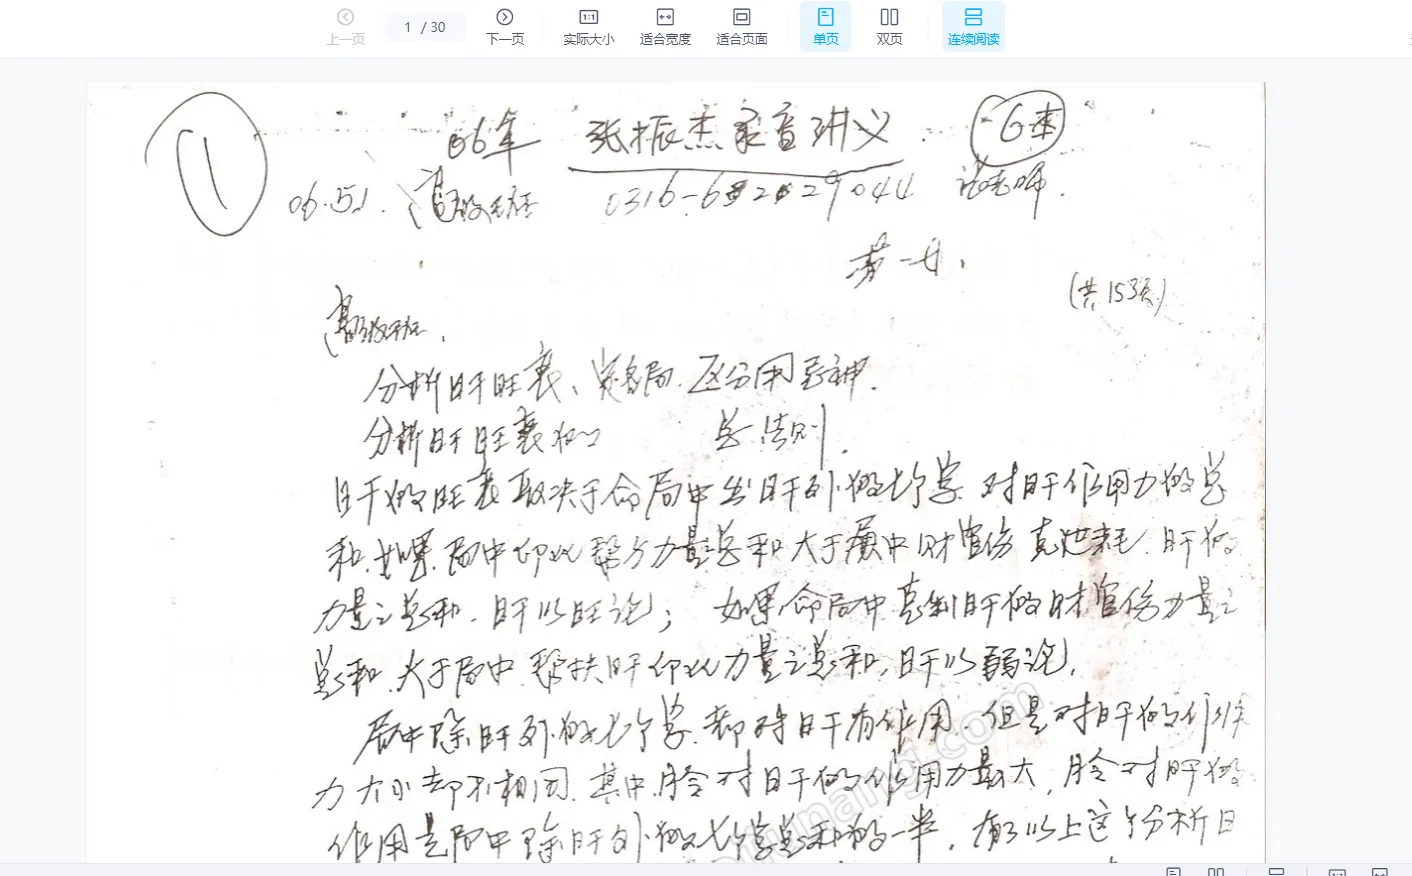 上一页 1 / 30 下一页 实际大小 适合宽度 适合页面 单页 双页 连续阅读
① 06年 张振杰家音讲义 6本
06.5.1. 高级班
第一册.
(共153页)
高级班.
分析日干旺衰、定格局.区分用忌神.
分析日干旺衰的 总法则.
日干的旺衰取决于命局中出日干外的七个字.对日干作用力的总
和.如果局中印比帮身力量之总和大于局中财官伤克泄耗.日干的
力量之总和.日干以旺论; 如果命局中克制日干的财官伤力量之
总和.大于局中帮扶日干印比力量之总和.日干以弱论.
局中除日干外的七个字.都对日干有作用.但是对日干的作用
力大小却不相同.其中.月令对日干的作用力最大,月令对日干的
作用是局中除日干外的七个字总和的一半.有了以上这个分析日